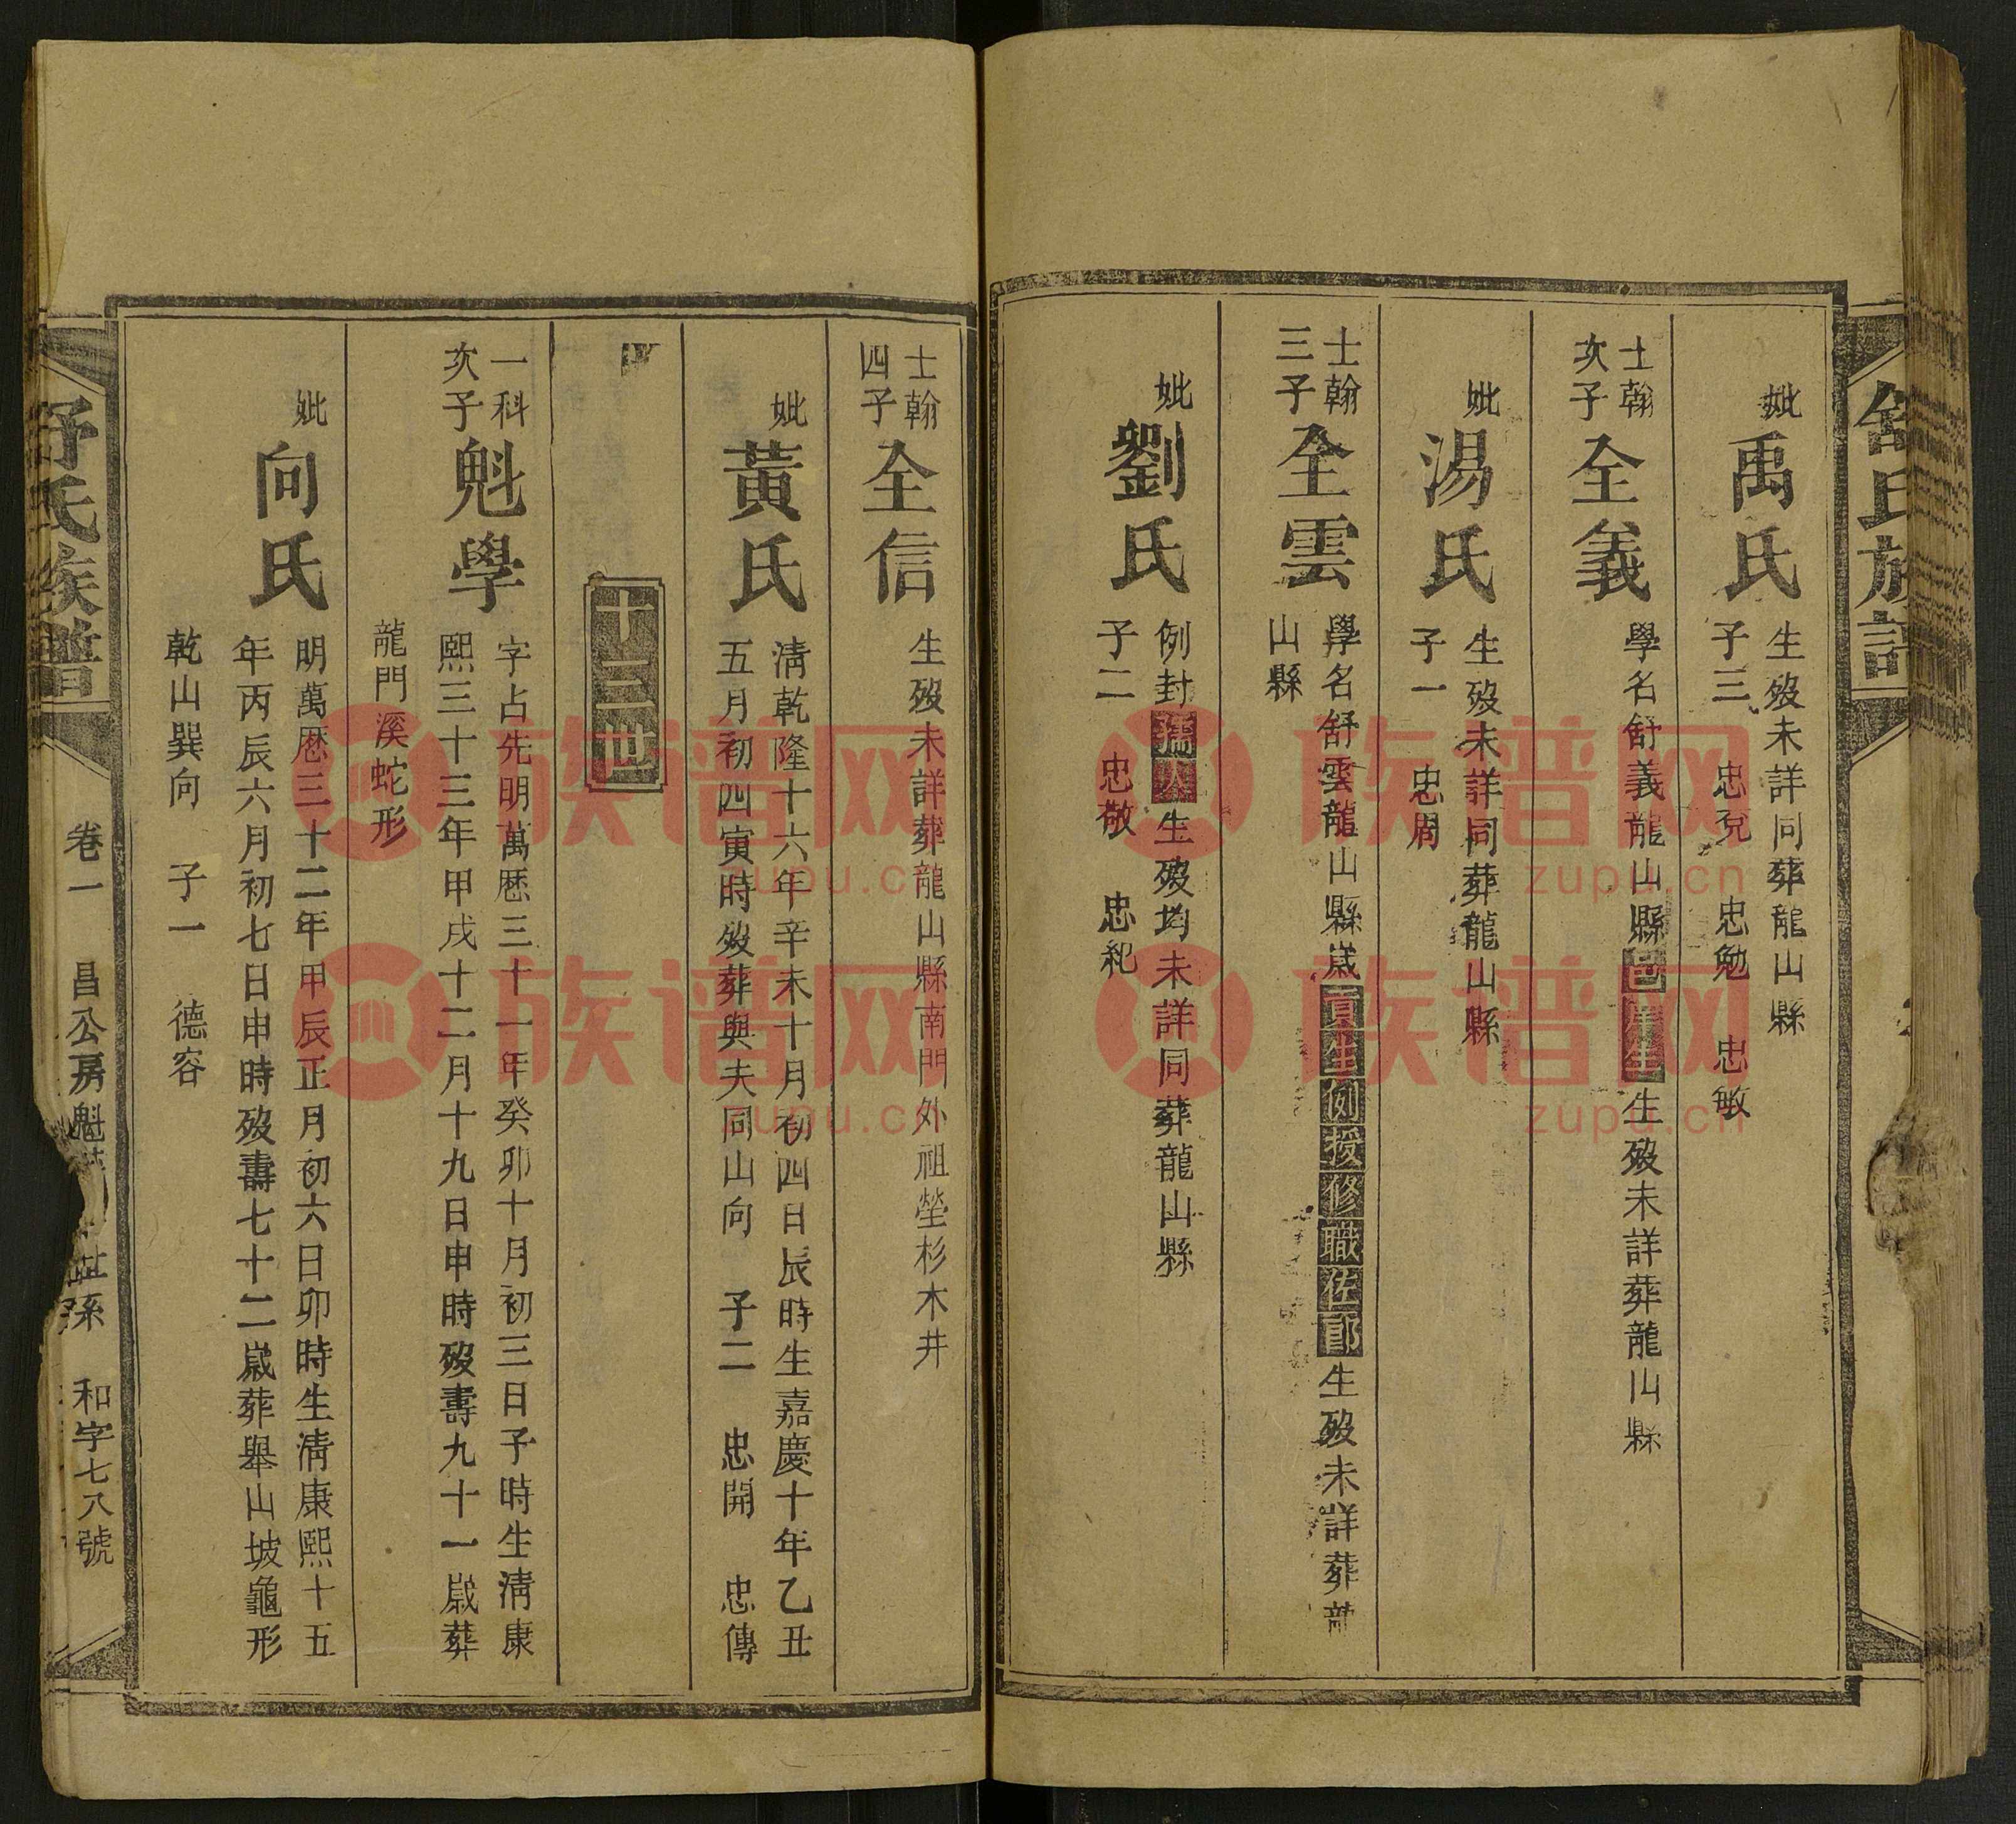 舒氏族譜
妣
禹氏
生歿未詳同葬龍山縣
子三 忠克 忠勉 忠敏
士翰
次子
全義
學名舒義龍山縣邑庠生生歿未詳葬龍山縣
妣
湯氏
生歿未詳同葬龍山縣
子一 忠周
士翰
三子
全雲
學名舒雲龍山縣歲貢生例授修職佐郎生歿未詳葬龍
山縣
妣
劉氏
例封孺人生歿均未詳同葬龍山縣
子二 忠敬 忠紀
士翰
四子
全信
生歿未詳葬龍山縣南門外祖塋杉木井
妣
黃氏
清乾隆十六年辛未十月初四日辰時生嘉慶十年乙丑
五月初四寅時歿葬與夫同山向 子二 忠開 忠傳
十三世
一科
次子
魁學
字占先明萬厯三十一年癸卯十月初三日子時生清康
熙三十三年甲戌十二月十九日申時歿壽九十一歲葬
龍門溪蛇形
妣
向氏
明萬厯三十二年甲辰正月初六日卯時生清康熙十五
年丙辰六月初七日申時歿壽七十二歲葬舉山坡龜形
乾山巽向 子一 德容
舒氏族譜
卷一 昌公房魁 孫 和字七八號
族谱网
zupu.cn
族谱网
zupu.cn
族谱网
zupu.cn
族谱网
zupu.cn